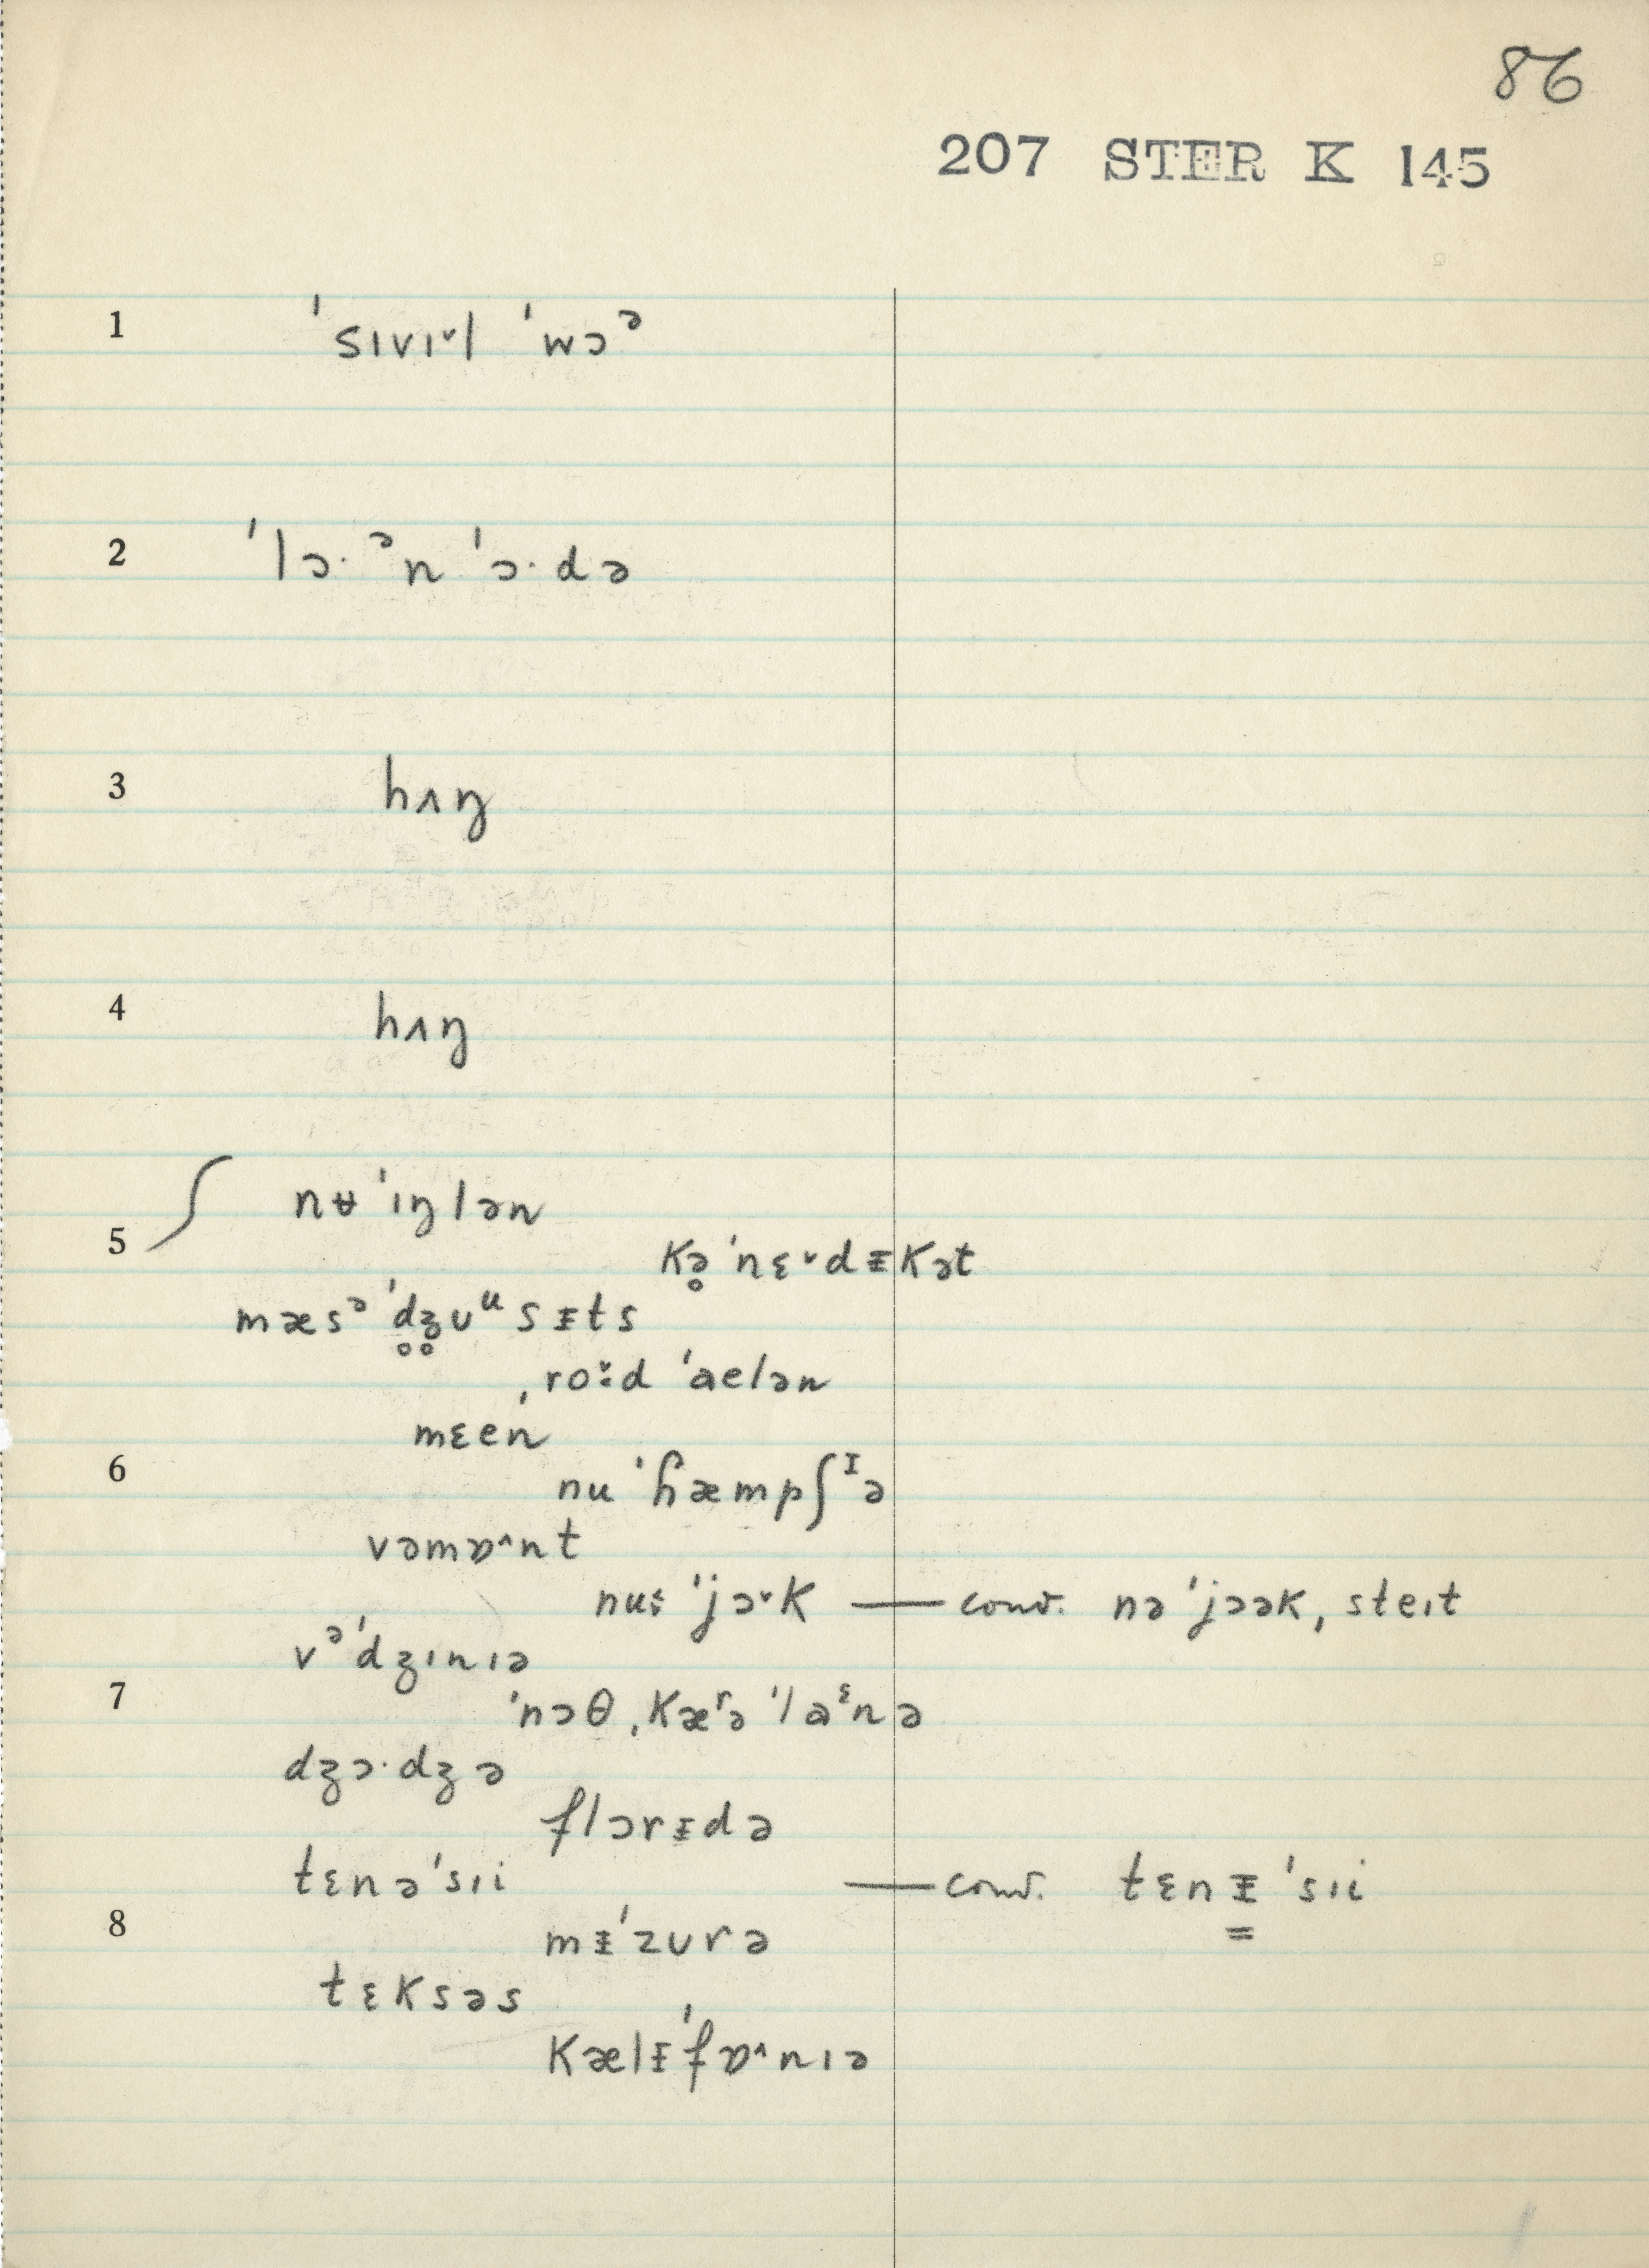 86
207 STER K 145
1 ˈsɪvɪ˅l ˈwɔᵊ
2 ˈlɔ·ᵊn ˈɔ·də
3 hʌŋ
4 hʌŋ
nʉ ˈɪŋlən
5 kə̥ ˈnɛ˅dᵻkət
mæsᵊ ˈd̥ʒ̊ʊᵘsᵻts
ˌro˅:d ˈaelən
mɛen
6 nu ˈɦæmpʃᶦə
vəmɒ˄nt
nu: ˈjɔ˅k — conv. nə ˈjɔək, steɪt
vᵊˈdʒɪnɪə
7 ˈnɔθ ˌkæʳə ˈlaᵋnə
dʒɔ·dʒə
flɔrᵻdə
tɛnəˈsɪi — conv. tɛnᵻ ˈsɪi
8 mᵻˈzʊrə
tɛksəs
kælᵻˈfɒ˄nɪə